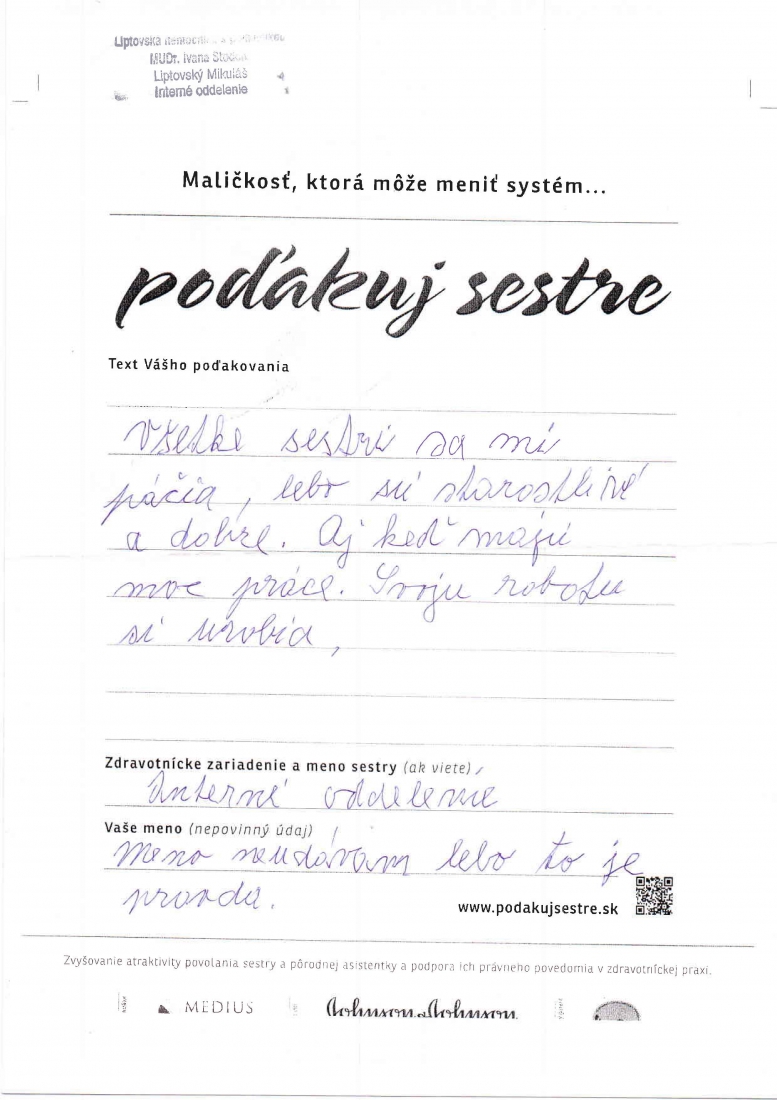 Liptovská
MUDr. Ivana
Liptovský Mikuláš
Interné oddelenie
Maličkosť, ktorá môže meniť systém...
poďakuj sestre
Text Vášho poďakovania
Všetke sestri sa mi
páčia, lebo sú starostlivé
a dobre. Aj keď majú
moc práce. Svoju robotu
si urobia,
Zdravotnícke zariadenie a meno sestry (ak viete)
Interné oddelenie
Vaše meno (nepovinný údaj)
Meno neudávam lebo to je
pravda.
www.podakujsestre.sk
Zvyšovanie atraktivity povolania sestry a pôrodnej asistentky a podpora ich právneho povedomia v zdravotníckej praxi.
MEDIUS
Johnson & Johnson